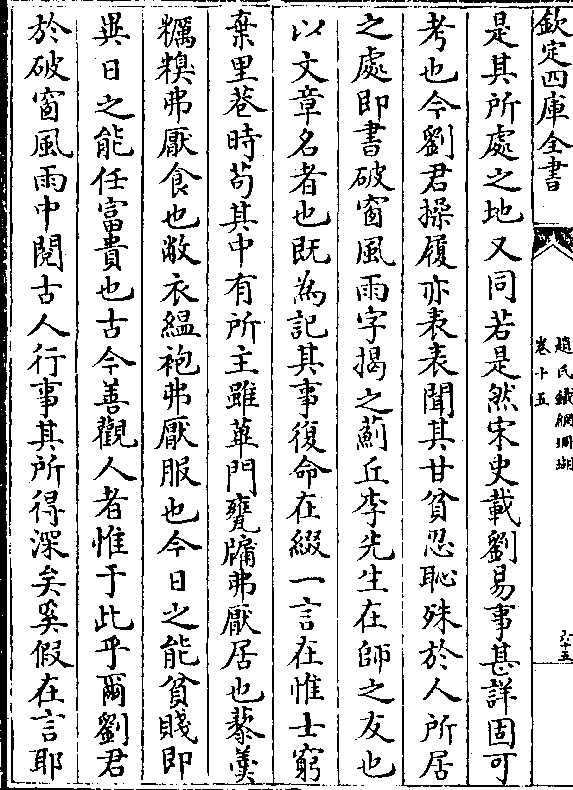 欽定四庫全書
趙氏鐵網珊瑚
卷十五
是其所處之地又同若是然宋史載劉易事甚詳固可
考也今劉君操履亦表表聞其甘貧忍恥殊於人所居
之處即書破窗風雨字揭之薊丘李先生在師之友也
以文章名者也既為記其事復命在綴一言在惟士窮
棄里巷時苟其中有所主雖蓽門甕牖弗厭居也藜羹
糲糗弗厭食也敝衣縕袍弗厭服也今日之能貧賤即
異日之能任富貴也古今善觀人者惟于此乎爾劉君
於破窗風雨中閱古人行事其所得深矣奚假在言耶